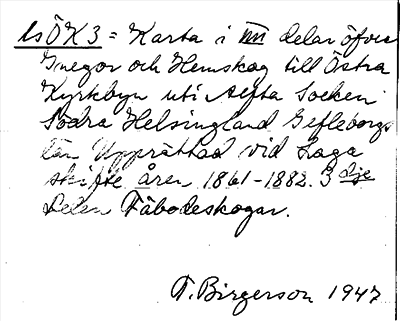 ÖK3 = Karta i IIII delar öfver
Inegor och Hemskog till Östra
Kyrkbyn uti Alfta Socken
Södra Helsingland Gefleborgs
län Upprättad vid Laga
skifte åren 1861-1882. 3dje
Delen Fäbodeskogar.
T. Birgerson 1947